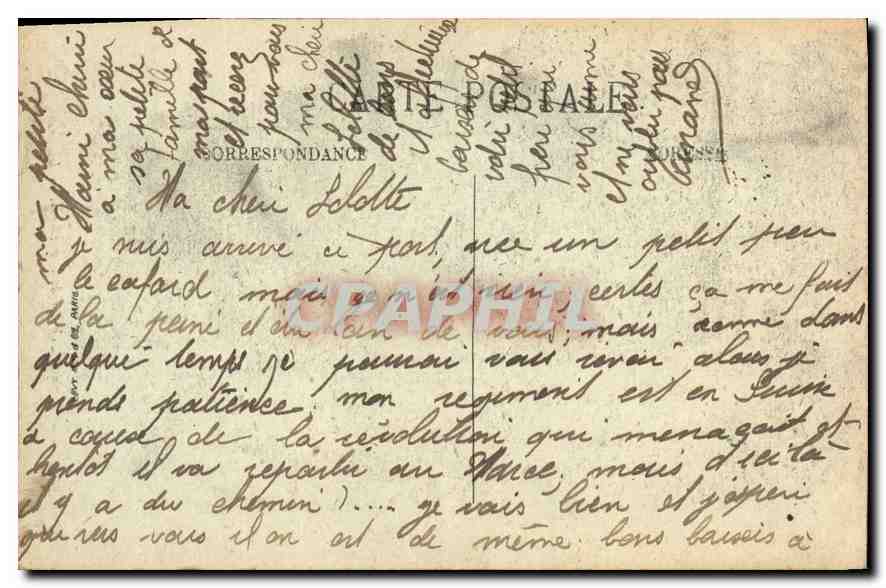 CARTE POSTALE
CORRESPONDANCE
ADRESSE
Ma cheri Lolotte
je suis arrivé a port, avec un petit peu
le cafard mais ce n'est rien, certes ça me fait
de la peine et loin de vous, mais comme dans
quelque temps je pourrai vous revoir alors je
prends patience mon regiment est en
a cause de la révolution qui menaçait et
bientot il va repartir au Maroc, mais d'ici la
il y a du chemin).... je vais bien et j'esperi
que vous il en est de même bons baisers à
ma petite
Mami cheri
à ma sœur
sa petite
famille de
ma part
et recevez
pour vous
ma cheri
Lolotte
de bons
baisers de
votre petit
vous aime
et ne vous
oublie pas
CPAPHIL